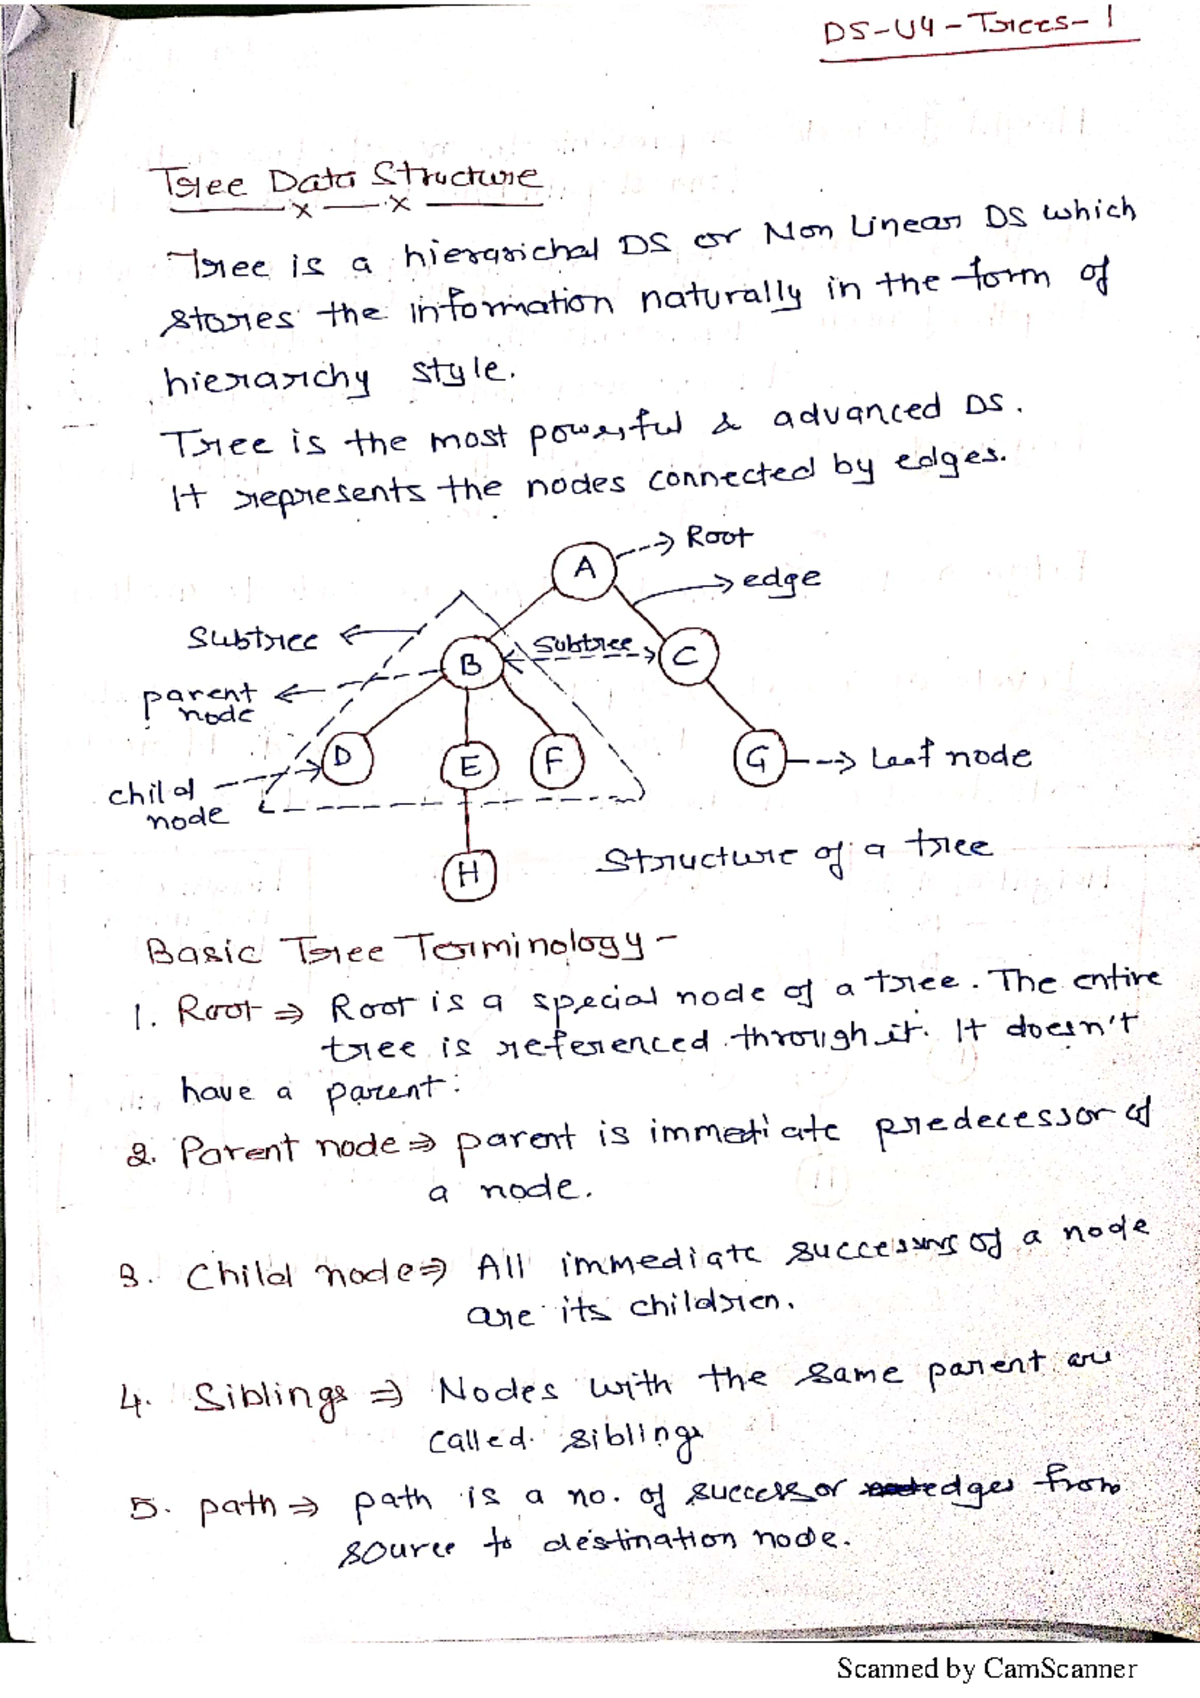 DS-U4-Trees-1
Tree Data Structure
Tree is a hierarichal DS or Non Linear DS which
stores the information naturally in the form of
hierarchy style.
Tree is the most powerful & advanced DS.
It represents the nodes connected by edges.
A
Root
edge
Subtree
B
Subtree
C
parent
node
D
E
F
G
Leaf node
child
node
H
Structure of a tree
Basic Tree Terminology -
1. Root ⇒ Root is a special node of a tree. The entire
tree is referenced through it. It doesn't
have a parent.
2. Parent node ⇒ parent is immediate predecessor of
a node.
3. Child node ⇒ All immediate successors of a node
are its children.
4. Siblings ⇒ Nodes with the same parent are
called siblings
5. path ⇒ path is a no. of successor edges from
source to destination node.
Scanned by CamScanner